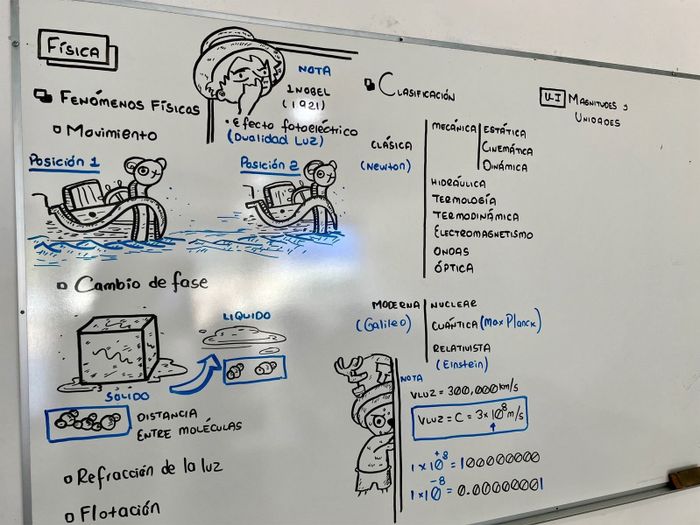 FÍSICA
FENÓMENOS FÍSICOS
Movimiento
Posición 1
Posición 2
Cambio de fase
SOLIDO
LIQUIDO
DISTANCIA
ENTRE MOLÉCULAS
Refracción de la luz
Flotación
NOTA
1 NOBEL
(1921)
• Efecto fotoeléctrico
(Dualidad Luz)
CLASIFICACIÓN
CLÁSICA
(Newton)
MECÁNICA
ESTÁTICA
CINEMÁTICA
DINÁMICA
HIDRÁULICA
TERMOLOGÍA
TERMODINÁMICA
ELECTROMAGNETISMO
ONDAS
ÓPTICA
MODERNA
(Galileo)
NUCLEAR
CUÁNTICA (Max Planck)
RELATIVISTA
(Einstein)
NOTA
VLUZ = 300,000 km/s
VLUZ = C = 3x10⁸ m/s
1x10⁺⁸ = 100000000
1x10⁻⁸ = 0.00000001
U-I MAGNITUDES y
UNIDADES